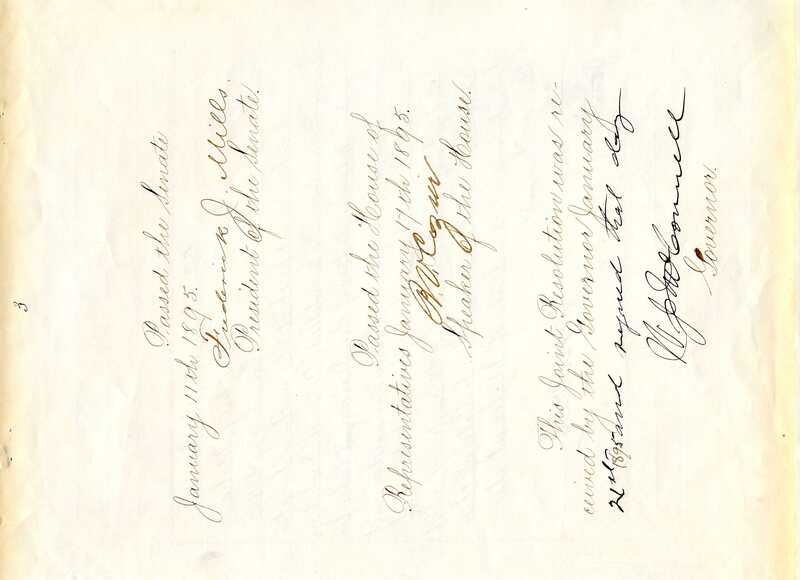 3
Passed the Senate
January 11th 1895.
Frederick J. Mills.
President of the Senate.
Passed the House of
Representatives January 17th 1895.
Speaker of the House.
This Joint Resolution was re-
ceived by the Governor January
21st 1895 and signed that day
W J McConnell
Governor.